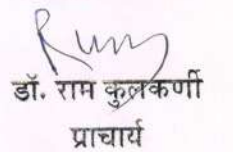 डॉ. राम कुलकर्णी
प्राचार्य